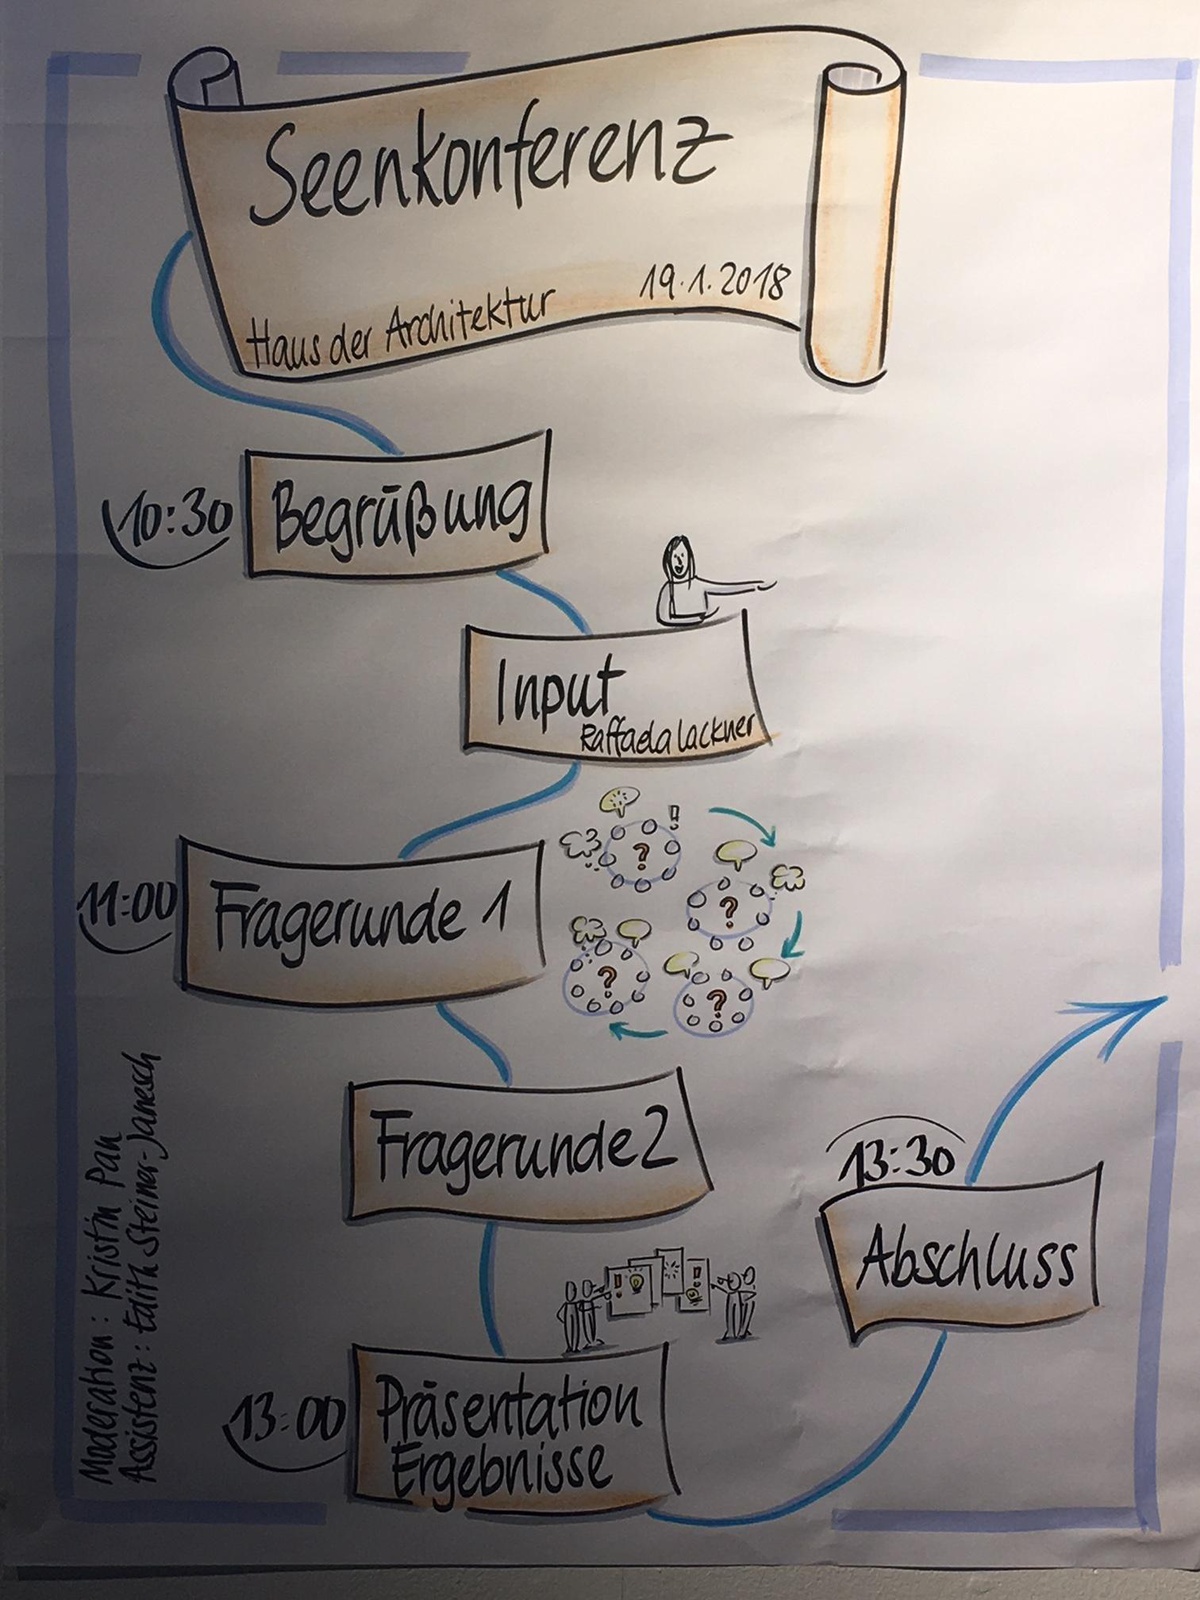 Seenkonferenz
Haus der Architektur 19.1.2018
10:30 Begrüßung
Input
Raffaela Lackner
11:00 Fragerunde 1
?
?
?
?
!
Fragerunde 2
13:30
Abschluss
!
!
13:00 Präsentation
Ergebnisse
Moderation: Kristin Pan
Assistenz: Edith Steiner-Janesch